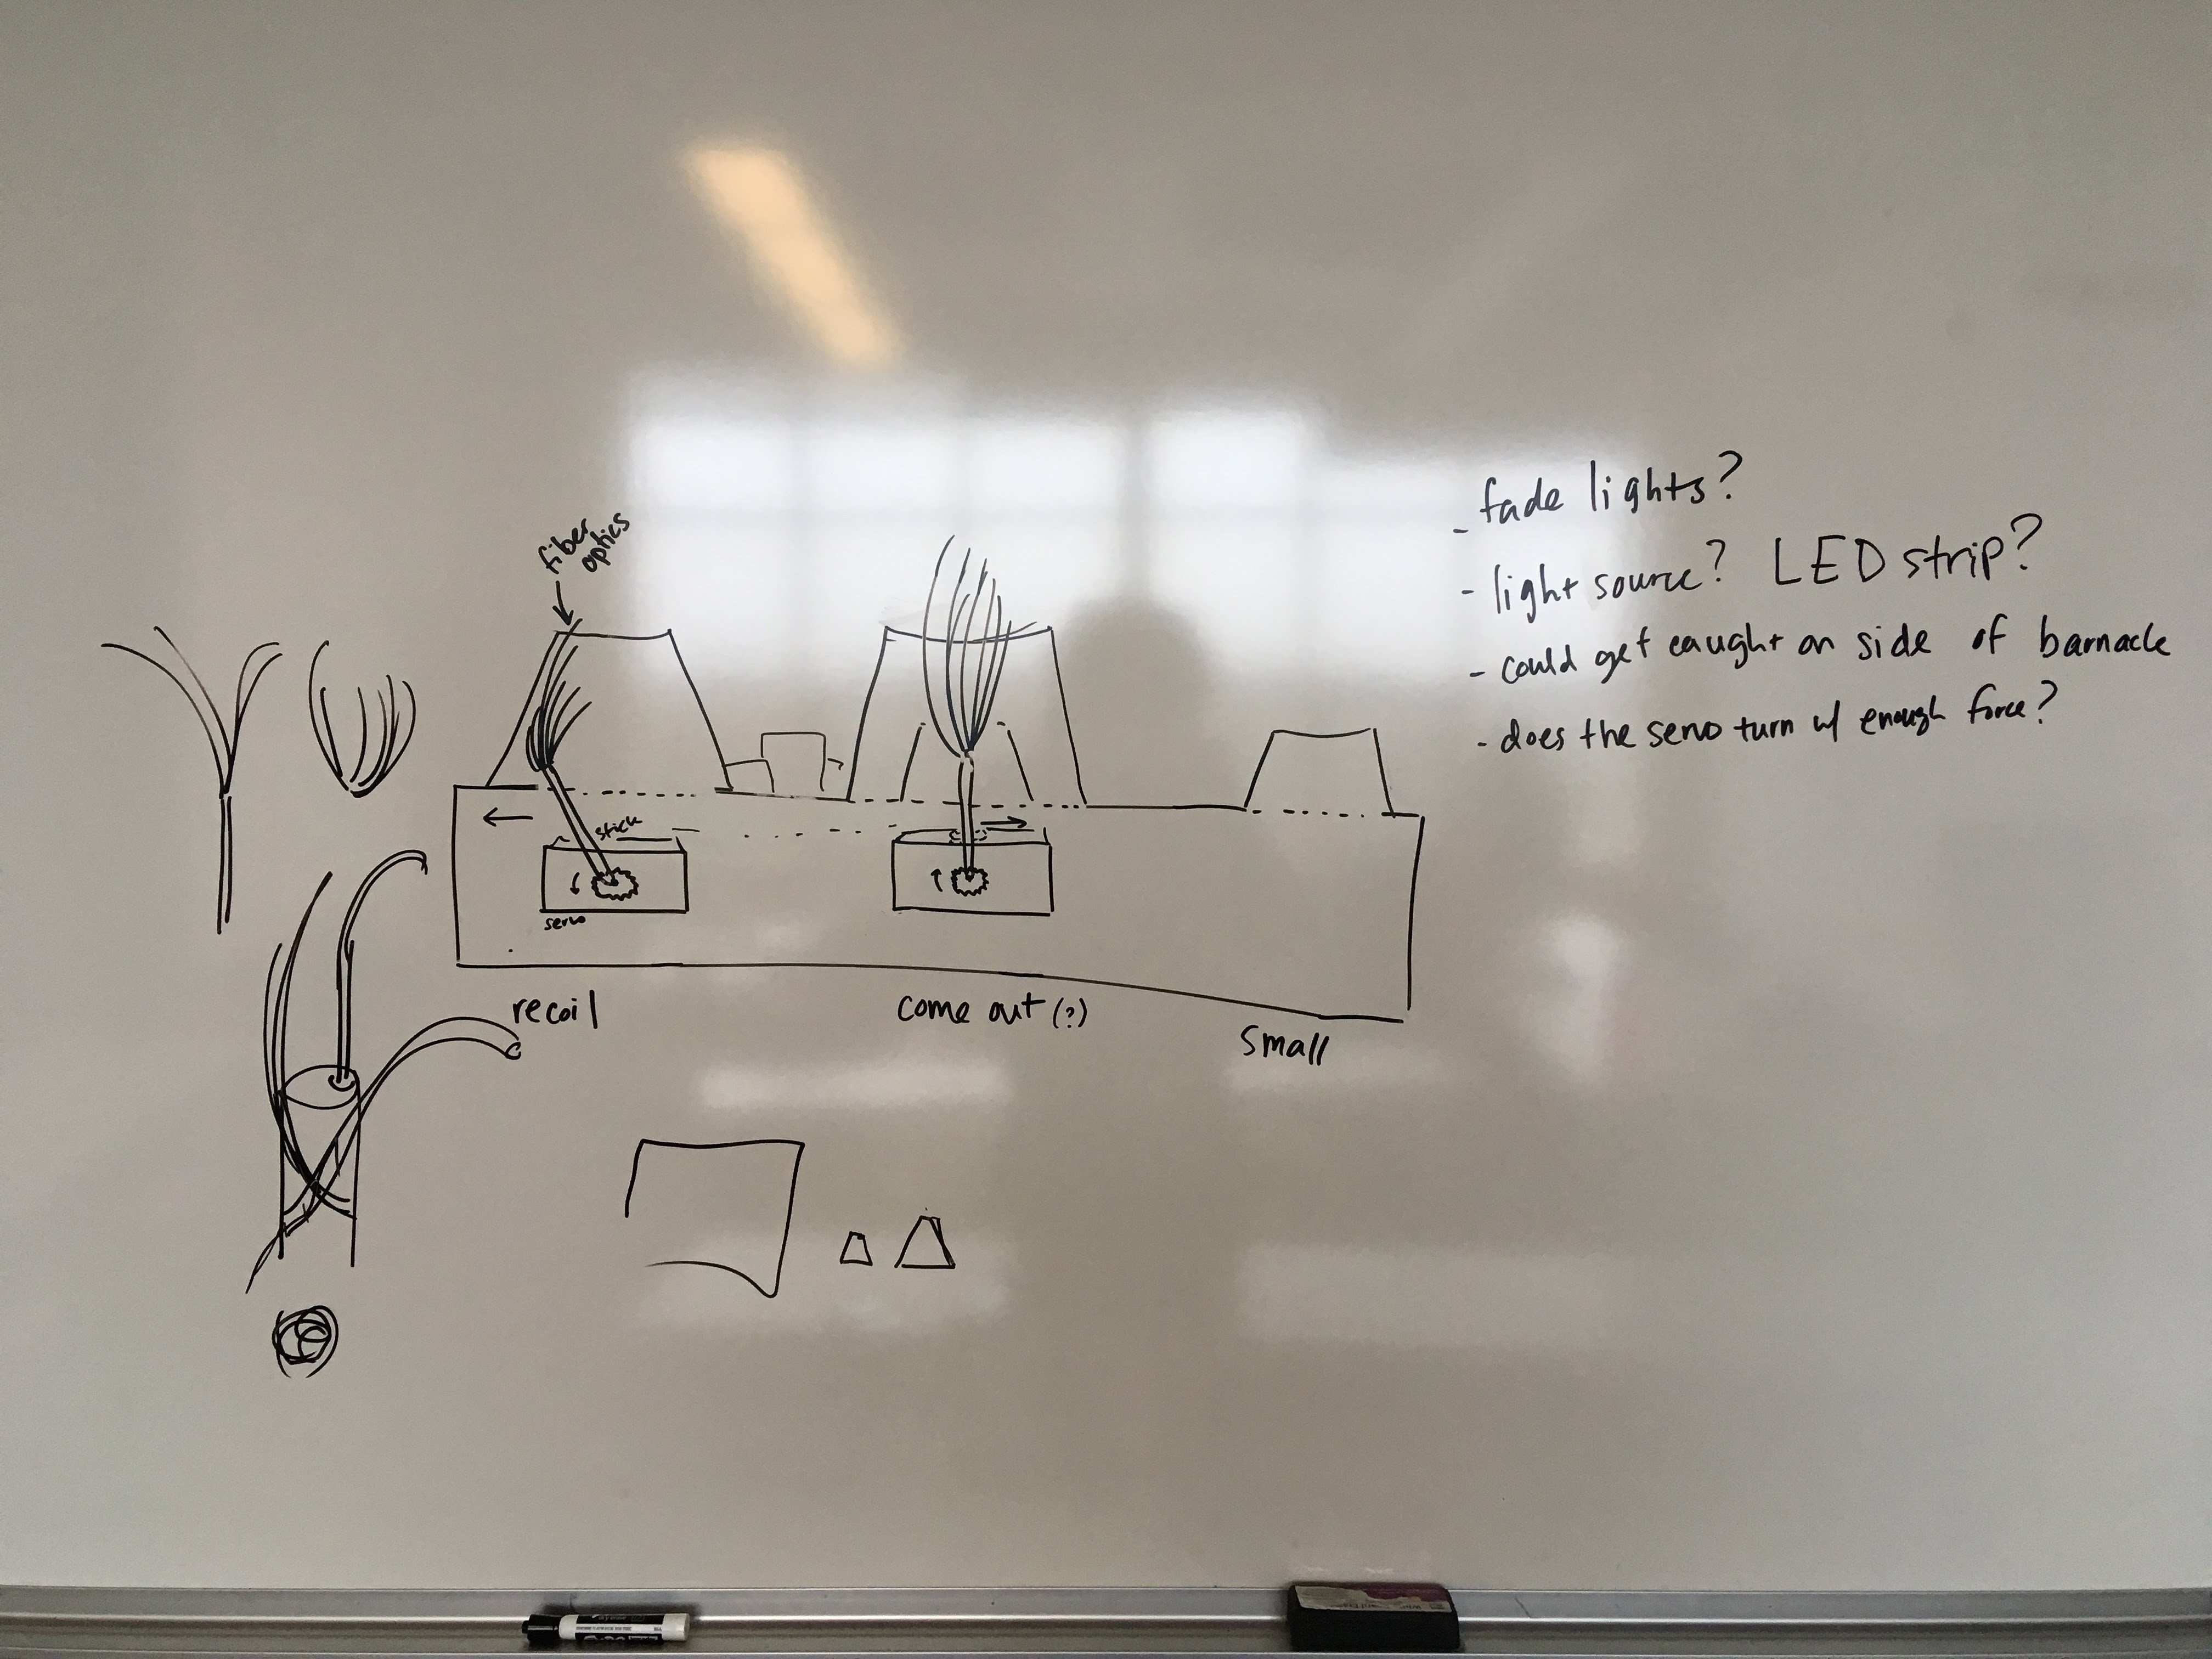 fiber
optics
stick
servo
recoil
come out (?)
small
- fade lights?
- light source? LED strip?
- could get caught on side of barnacle
- does the servo turn w/ enough force?